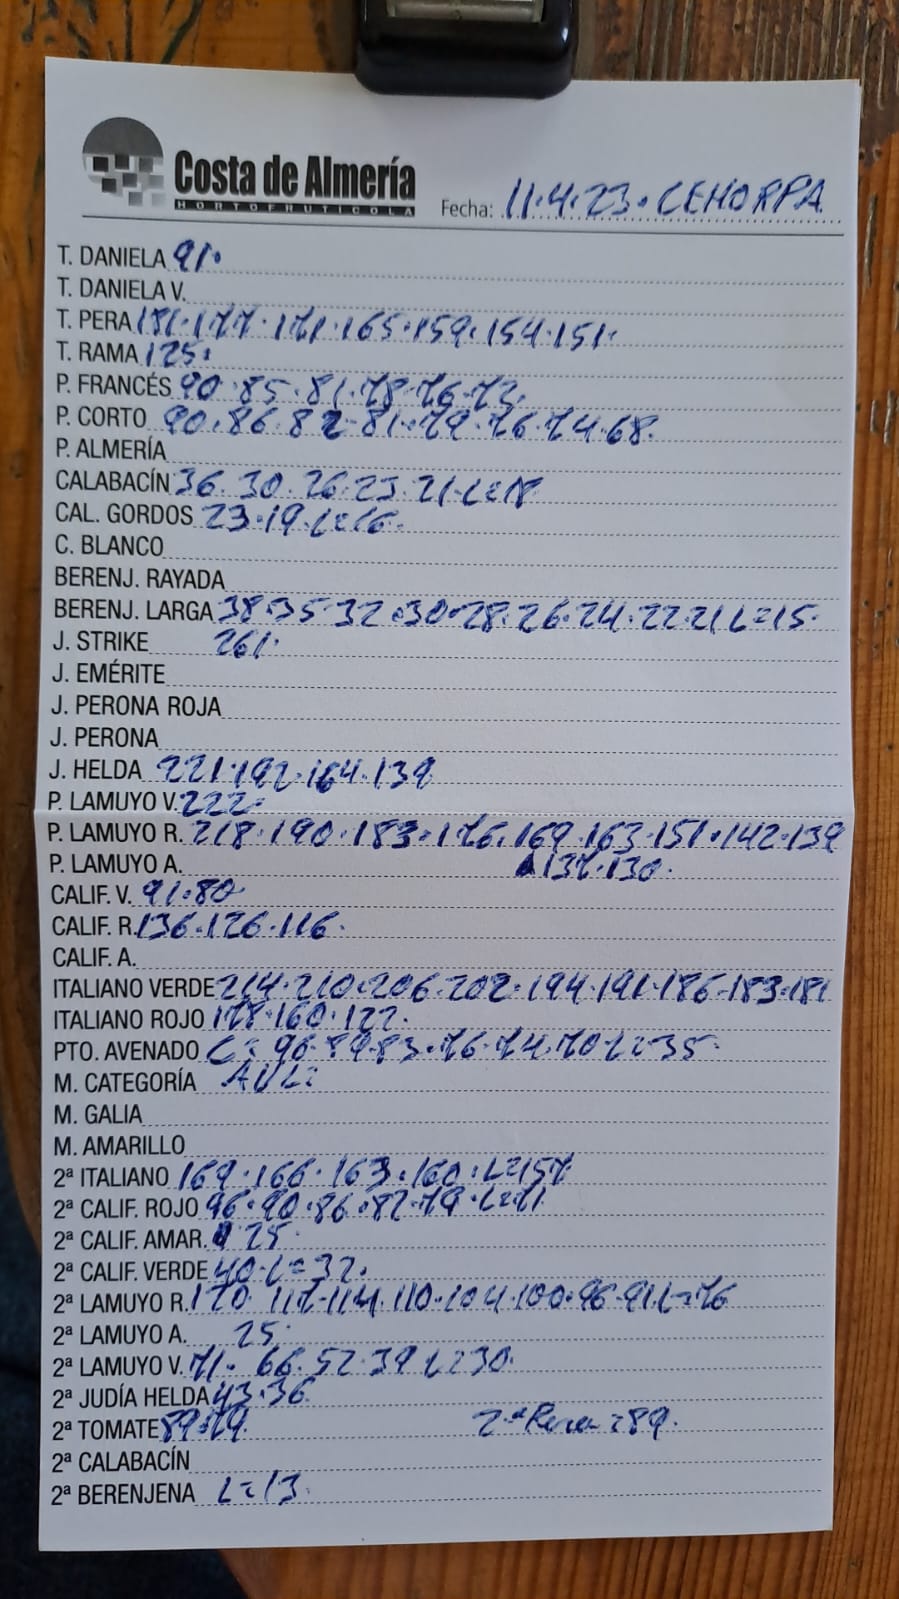 Costa de Almería
HORTOFRUTICOLA
Fecha: 11.4.23. CEHORPA
T. DANIELA 91.
T. DANIELA V.
T. PERA 181.177.171.165.159.154.151.
T. RAMA 125.
P. FRANCÉS 90.85.81.78.76.72.
P. CORTO 90.86.82-81.79.76.74.68.
P. ALMERÍA
CALABACÍN 36.30.26.23.21.L=18
CAL. GORDOS 23.19.L=16.
C. BLANCO
BERENJ. RAYADA
BERENJ. LARGA 38.35.32.30.28.26.24.22.21 L=15.
J. STRIKE 261.
J. EMÉRITE
J. PERONA ROJA
J. PERONA
J. HELDA 221.192.164.139
P. LAMUYO V. 222.
P. LAMUYO R. 218.190.183.176.169.163.151.142.139
P. LAMUYO A. 137.130.
CALIF. V. 91.80
CALIF. R. 136.126.116.
CALIF. A.
ITALIANO VERDE 214.210.206.202.194.191.186-183.181
ITALIANO ROJO 178.160.122.
PTO. AVENADO C= 96.89.83.76.74.70.L=35.
M. CATEGORÍA
M. GALIA
M. AMARILLO
2ª ITALIANO 169.166.163.160.L=157
2ª CALIF. ROJO 96.90.86.82.79.L=71
2ª CALIF. AMAR. 25.
2ª CALIF. VERDE 40.L=32.
2ª LAMUYO R. 120 117.114.110.104.100.96.91 L=76
2ª LAMUYO A. 25.
2ª LAMUYO V. 71. 66.52.39 L=30.
2ª JUDÍA HELDA 43.36.
2ª TOMATE 89.79. 2ª Pera=89.
2ª CALABACÍN
2ª BERENJENA L=13.